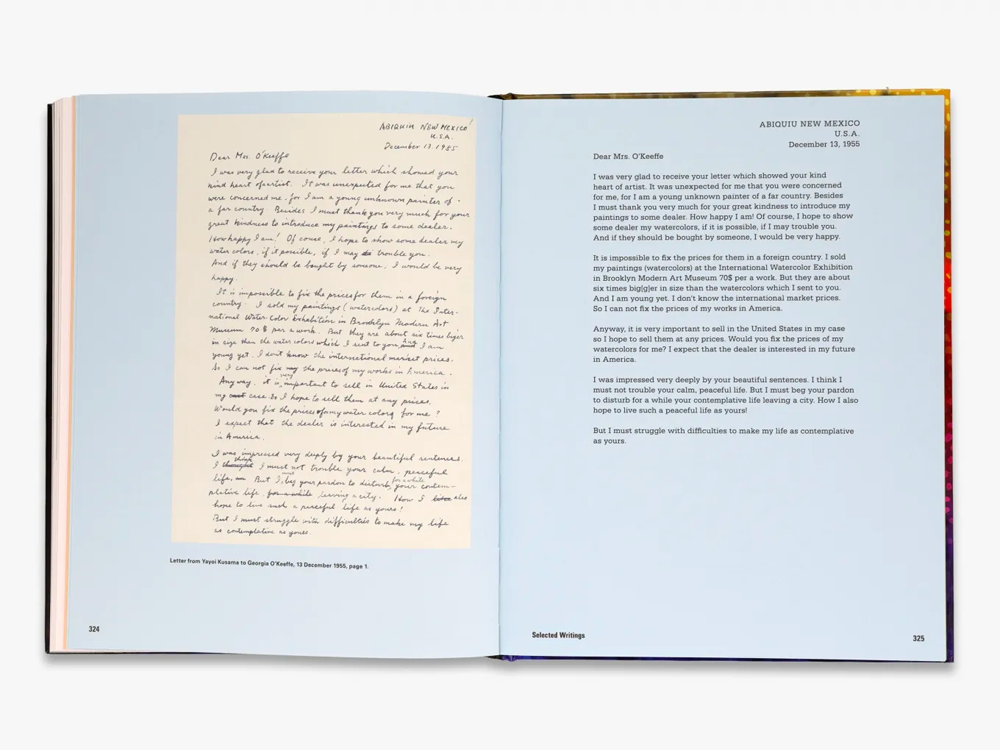 ABIQUIU NEW MEXICO
U.S.A.
December 13. 1955
Dear Mrs O'Keeffe
I was very glad to receive your letter which showed your
kind heart of artist. It was unexpected for me that you
were concerned me, for I am a young unknown painter of
a far country. Besides I must thank you very much for your
great kindness to introduce my paintings to some dealer.
How happy I am! Of course, I hope to show some dealer my
water colors, if it possible, if I may trouble you.
And if they should be bought by someone, I would be very
happy.
It is impossible to fix the prices for them in a foreign
country. I sold my paintings (watercolors) at the Inter-
national Water-Color Exhibition in Brooklyn Modern Art
Museum 70$ per a work. But they are about six times biger
in size than the water colors which I sent to you. And I am
young yet. I don't know the international market prices.
So I can not fix the prices of my works in America.
Anyway, it is very important to sell in United States in
my case So I hope to sell them at any prices.
Would you fix the prices of my water colors for me?
I expect that the dealer is interested in my future
in America.
I was impressed very deeply by your beautiful sentences.
I think I must not trouble your calm, peaceful
life. But I must beg your pardon to disturb for a while your contem-
plative life leaving a city. How I also
hope to live such a peaceful life as yours!
But I must struggle with difficulties to make my life
as contemplative as yours.
Letter from Yayoi Kusama to Georgia O'Keeffe, 13 December 1955, page 1
324
ABIQUIU NEW MEXICO
U.S.A.
December 13, 1955
Dear Mrs. O'Keeffe
I was very glad to receive your letter which showed your kind
heart of artist. It was unexpected for me that you were concerned
for me, for I am a young unknown painter of a far country. Besides
I must thank you very much for your great kindness to introduce my
paintings to some dealer. How happy I am! Of course, I hope to show
some dealer my watercolors, if it is possible, if I may trouble you.
And if they should be bought by someone, I would be very happy.
It is impossible to fix the prices for them in a foreign country. I sold
my paintings (watercolors) at the International Watercolor Exhibition
in Brooklyn Modern Art Museum 70$ per a work. But they are about
six times big[g]er in size than the watercolors which I sent to you.
And I am young yet. I don't know the international market prices.
So I can not fix the prices of my works in America.
Anyway, it is very important to sell in the United States in my case
so I hope to sell them at any prices. Would you fix the prices of my
watercolors for me? I expect that the dealer is interested in my future
in America.
I was impressed very deeply by your beautiful sentences. I think I
must not trouble your calm, peaceful life. But I must beg your pardon
to disturb for a while your contemplative life leaving a city. How I also
hope to live such a peaceful life as yours!
But I must struggle with difficulties to make my life as contemplative
as yours.
Selected Writings
325